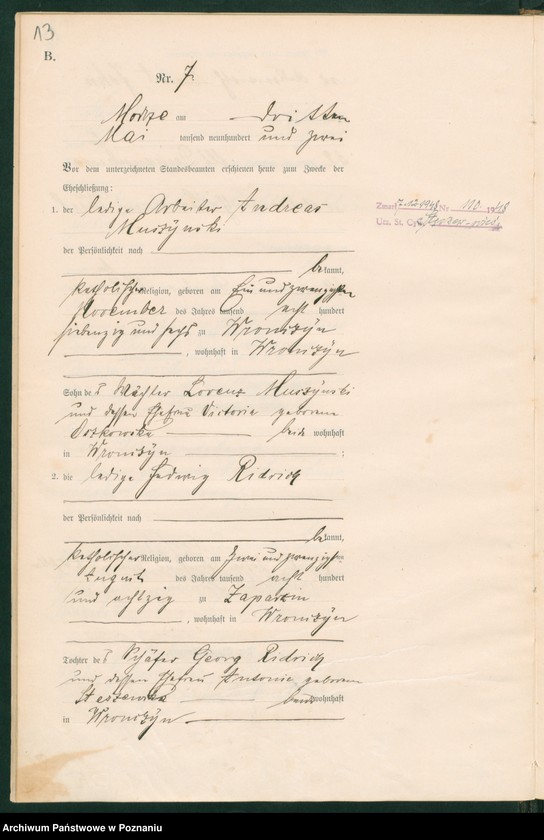 13
B.
Nr. 7.
am dritten
Mai tausend neunhundert und zwei
Vor dem unterzeichneten Standesbeamten erschienen heute zum Zwecke der
Eheschließung:
1. der ledige Arbeiter Andreas
Murzynski
der Persönlichkeit nach
bekannt,
katholischer Religion, geboren am Ein und zwanzigsten
November des Jahres tausend acht hundert
siebenzig und sechs zu Wronczyn
, wohnhaft in Wronczyn
Sohn des Wächter Lorenz Murzynski
und dessen Ehefrau Victoria geborene
beide wohnhaft
in Wronczyn ;
2. die ledige Hedwig Ridrich
der Persönlichkeit nach
bekannt,
katholischer Religion, geboren am Zwei und zwanzigsten
August des Jahres tausend acht hundert
und achtzig zu
, wohnhaft in Wronczyn
Tochter des Schäfer Georg Ridrich
und dessen Ehefrau Antonie geborene
beide wohnhaft
in Wronczyn
Nr.
Urz. St. Cyw.
Archiwum Państwowe w Poznaniu